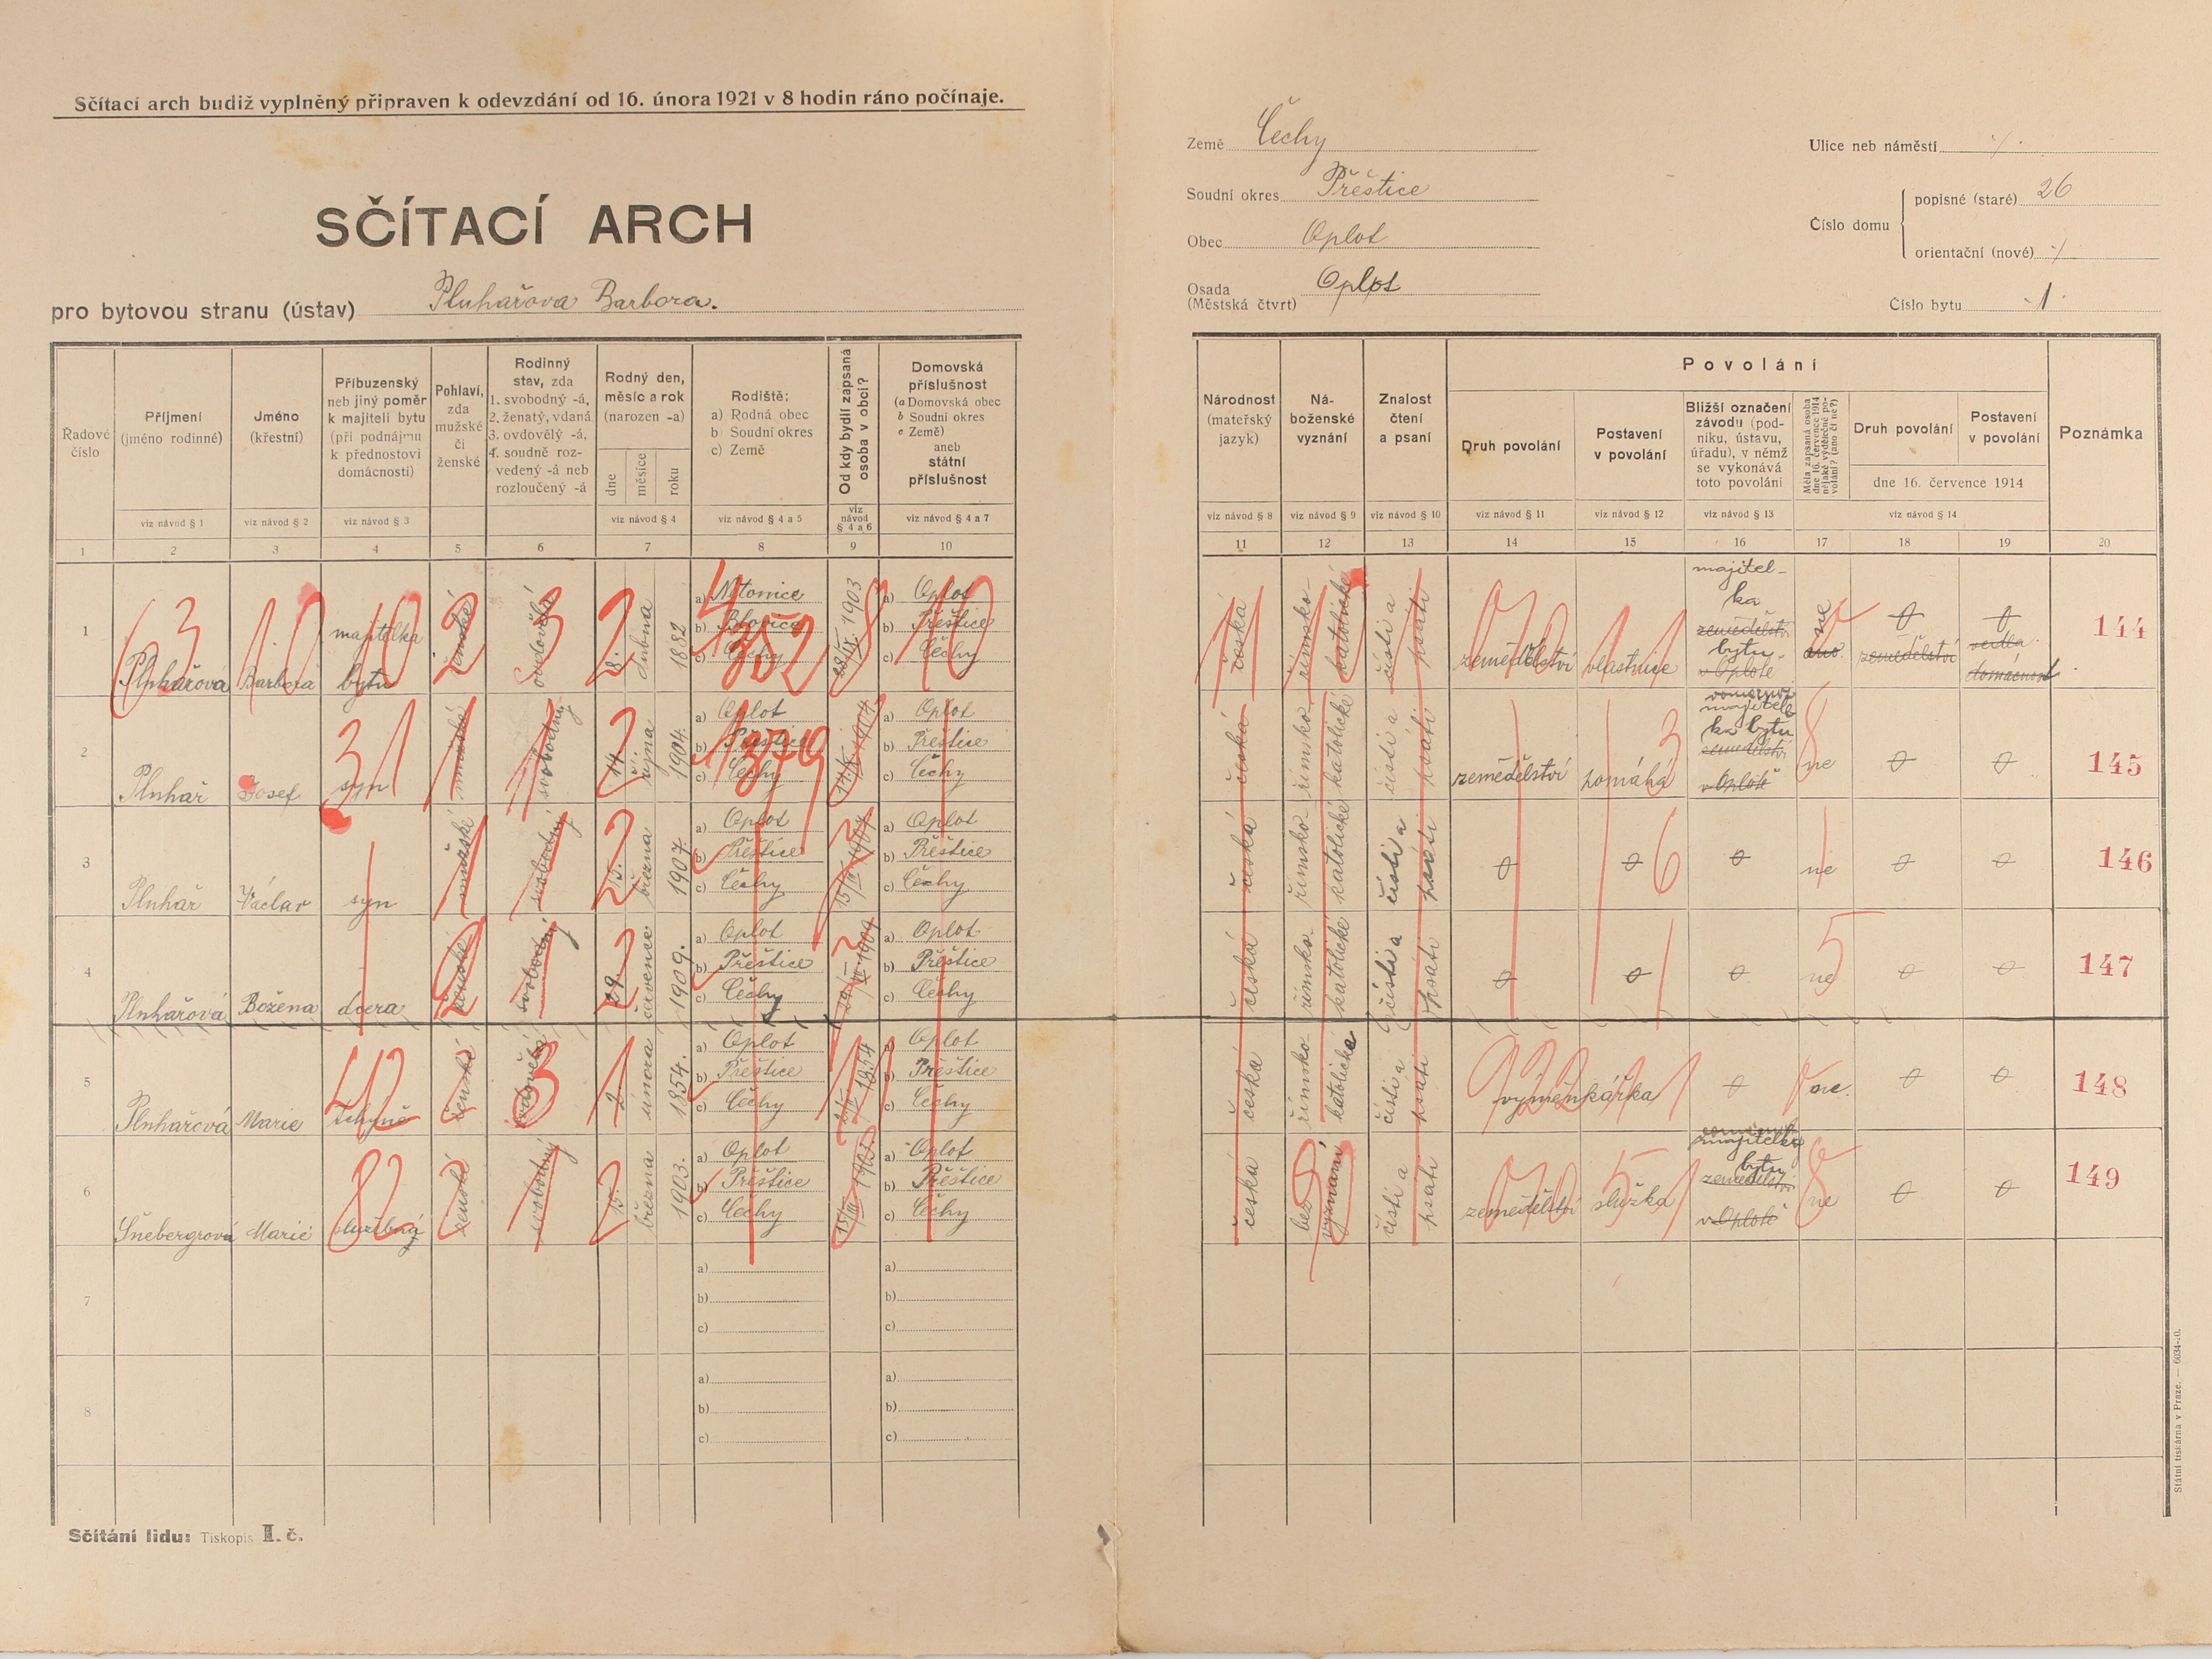 Sčítací arch budiž vyplněný připraven k odevzdání od 16. února 1921 v 8 hodin ráno počínaje.
SČÍTACÍ ARCH
pro bytovou stranu (ústav) Pluhařova Barbora.
Země Čechy
Soudní okres Přeštice
Obec Oplot
Osada Oplot
(Městská čtvrt)
Ulice neb náměstí ·/·
Číslo domu
popisné (staré) 26
orientační (nové) ·/·
Číslo bytu 1
Řadové číslo
Příjmení (jméno rodinné)
Jméno (křestní)
Příbuzenský neb jiný poměr k majiteli bytu (při podnájmu k přednostovi domácnosti)
Pohlaví, zda mužské či ženské
Rodinný stav, zda 1. svobodný -á, 2. ženatý, vdaná 3. ovdovělý -á, 4. soudně rozvedený -á neb rozloučený -á
Rodný den, měsíc a rok (narozen -a)
dne měsíce roku
Rodiště: a) Rodná obec b) Soudní okres c) Země
Od kdy bydlí zapsaná osoba v obci?
Domovská příslušnost (a Domovská obec b Soudní okres c Země) aneb státní příslušnost
Národnost (mateřský jazyk)
Náboženské vyznání
Znalost čtení a psaní
Povolání
Druh povolání
Postavení v povolání
Bližší označení závodu (podniku, ústavu, úřadu), v němž se vykonává toto povolání
Měla zapsaná osoba dne 16. července 1914 nějaké výdělečné povolání? (ano či ne?)
Druh povolání
Postavení v povolání
dne 16. července 1914
Poznámka
viz návod § 1 viz návod § 2 viz návod § 3 viz návod § 4 viz návod § 4 a 5 viz návod § 4 a 6 viz návod § 4 a 7
viz návod § 8 viz návod § 9 viz návod § 10 viz návod § 11 viz návod § 12 viz návod § 13 viz návod § 14
1 2 3 4 5 6 7 8 9 10
11 12 13 14 15 16 17 18 19 20
1 Pluhařová Barbora majitelka bytu ženské ovdovělá 8. dubna 1882
a) Mítonice b) Blovice c) Čechy
28/IX. 1903
a) Oplot b) Přeštice c) Čechy
česká římsko-katolické čísti a psáti zemědělství vlastnice
majitel-ka zemědělství bytu v Oplotě
ne ano. 0 zemědělství 0 vedla domácnost 144
2 Pluhař Josef syn mužské svobodný 14. října 1904.
a) Oplot b) Přeštice c) Čechy
14/X 1904
a) Oplot b) Přeštice c) Čechy
česká římsko-katolické čísti a psáti zemědělství pomáhá
ka bytu zemědělství v Oplotě
ne 0 0 145
3 Pluhař Václav syn mužské svobodný 15. března 1907.
a) Oplot b) Přeštice c) Čechy
15/III 1907
a) Oplot b) Přeštice c) Čechy
česká římsko-katolické čísti a psáti 0 0 0 ne 0 0 146
4 Pluhařová Božena dcera ženské svobodný 29. července 1909.
a) Oplot b) Přeštice c) Čechy
a) Oplot b) Přeštice c) Čechy
česká římsko-katolické čísti a psáti 0 0 0 ne 0 0 147
5 Pluhařová Marie tchyně ženské ovdovělá 2. února 1854.
a) Oplot b) Přeštice c) Čechy
2/II 1854
a) Oplot b) Přeštice c) Čechy
česká římsko-katolické čísti a psáti výměnkářka 0 ne. 0 0 148
6 Šnebergrová Marie služebná ženské svobodný 15. března 1903.
a) Oplot b) Přeštice c) Čechy
15/III 1903.
a) Oplot b) Přeštice c) Čechy
česká bez vyznání čísti a psáti zemědělství služka
majitelky bytu zemědělství v Oplotě
ne 0 0 149
7 a) b) c) a) b) c)
8 a) b) c) a) b) c)
Sčítání lidu: Tiskopis II. č.
Státní tiskárna v Praze. — 6034-10.